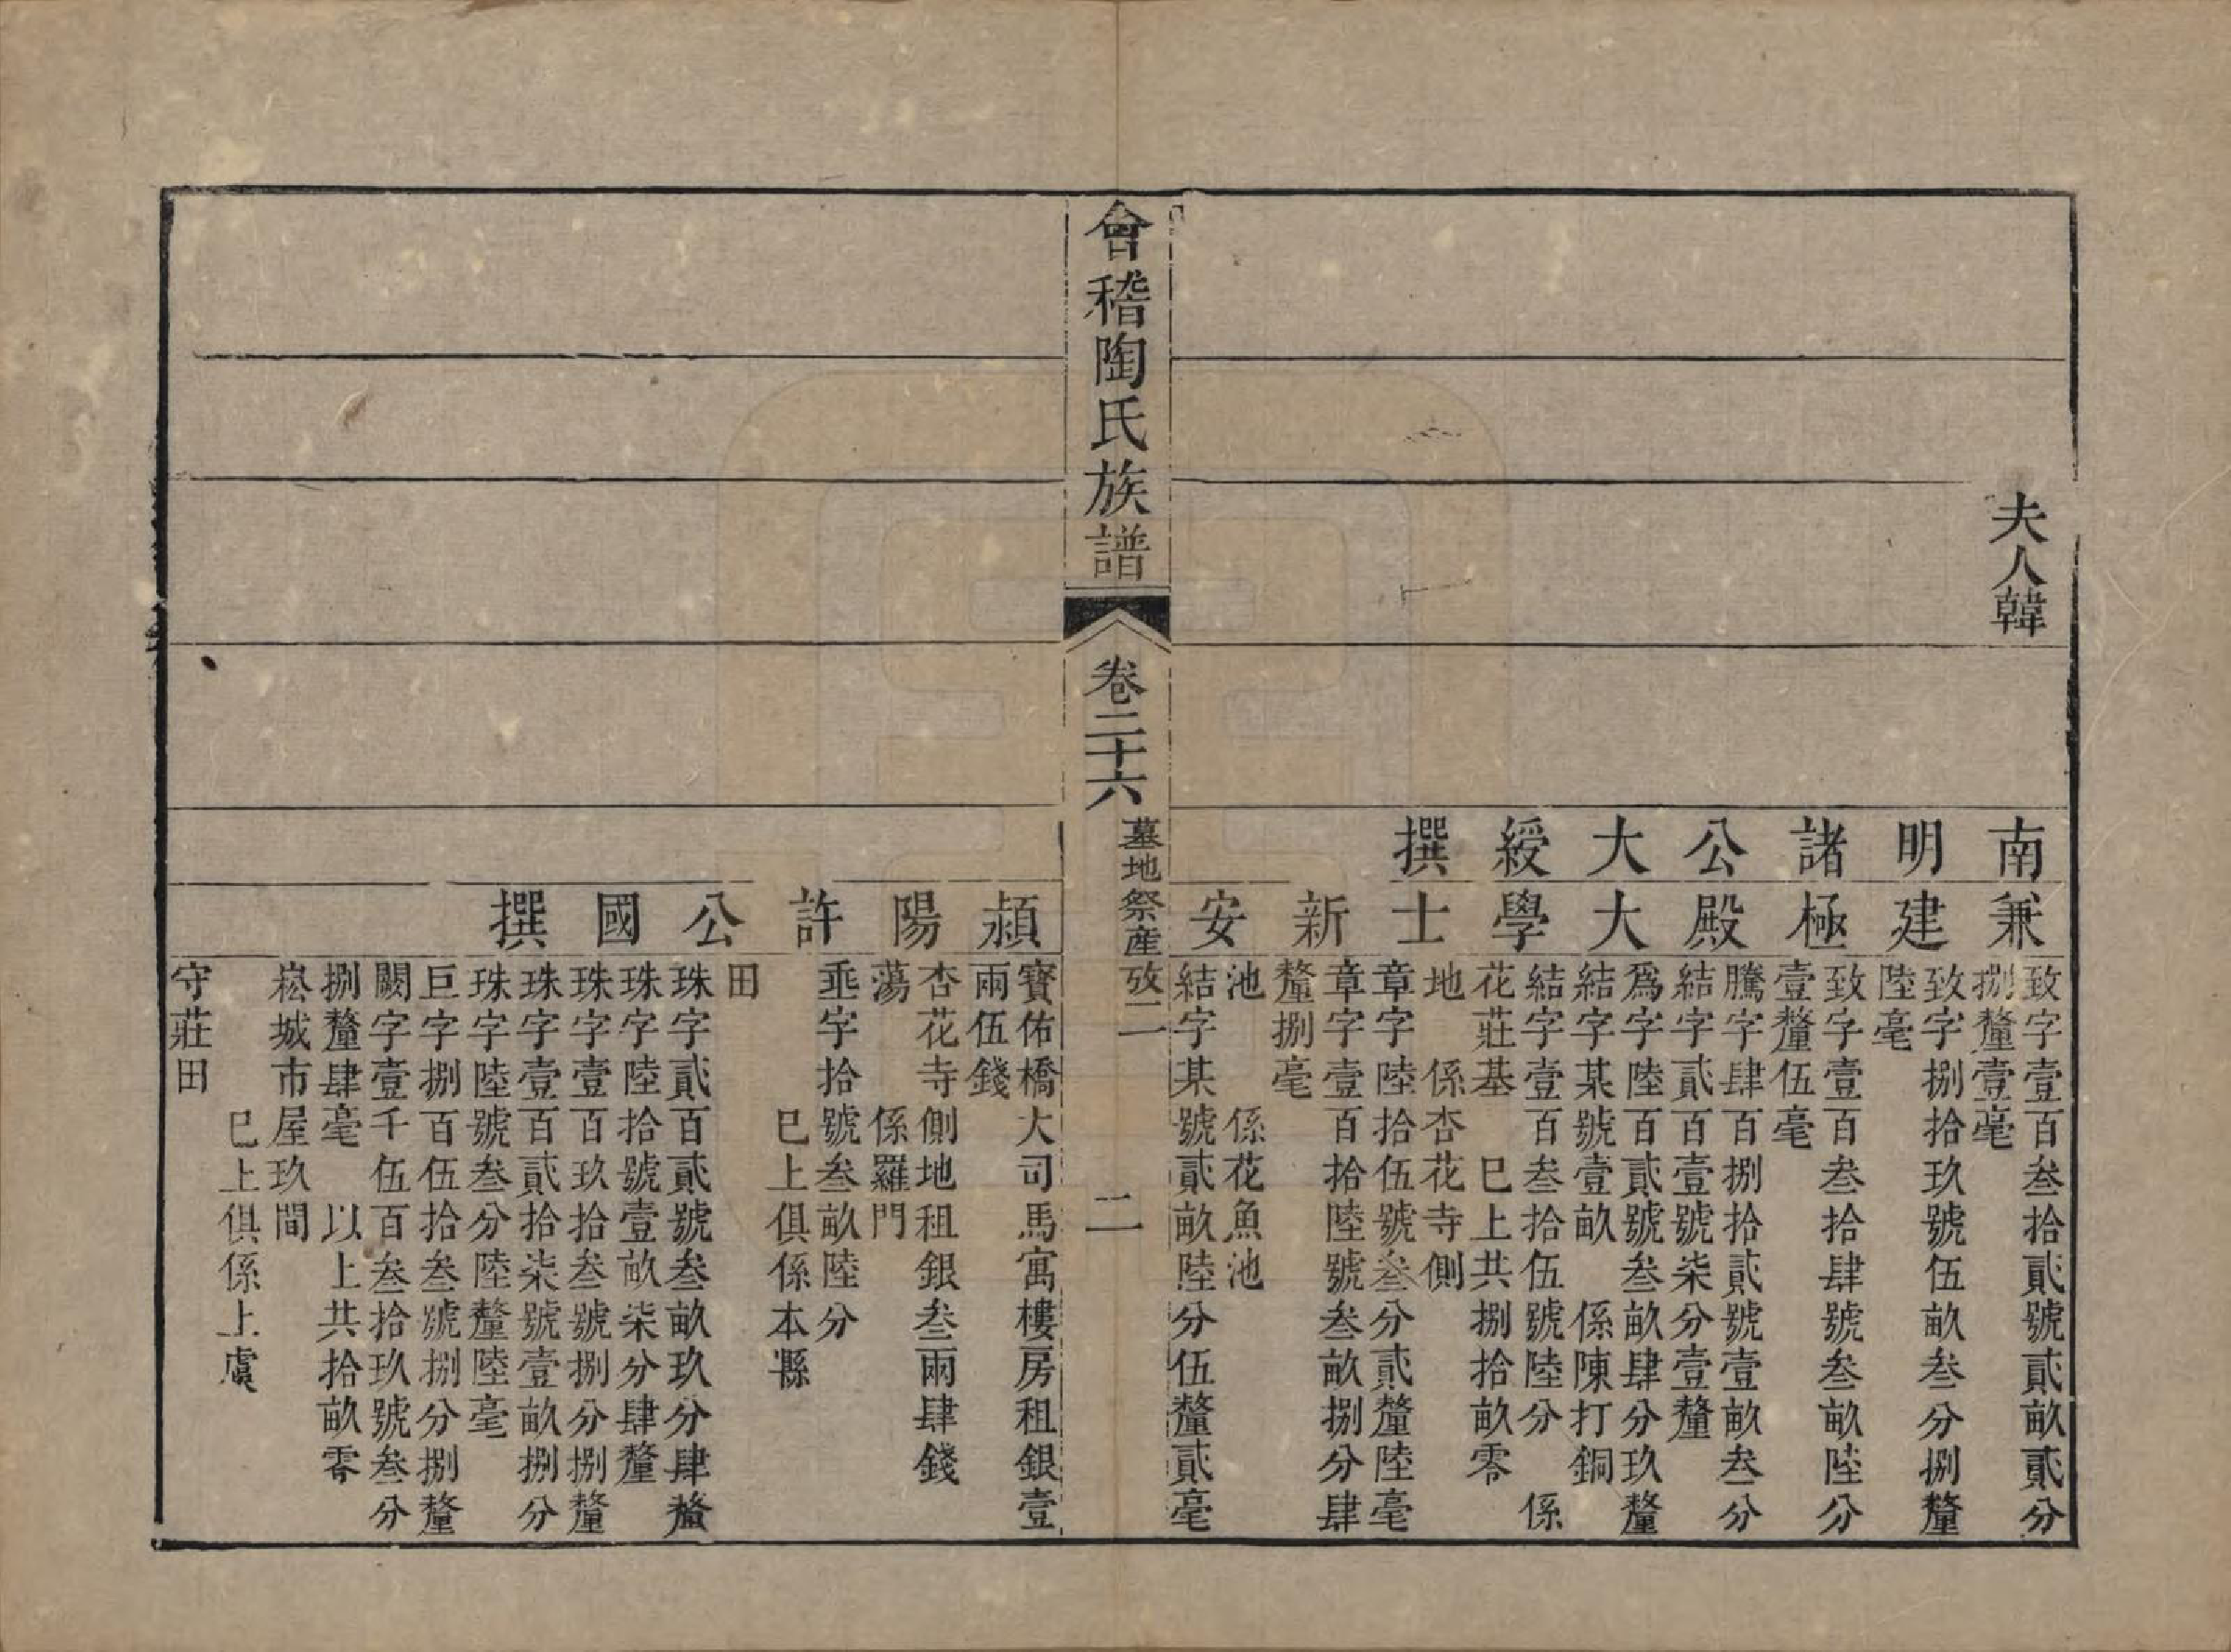 夫人韓
南明諸公大綬撰
兼建極殿大學士新安
致字壹百叁拾貳號貳畝貳分
捌釐壹毫
致字捌拾玖號伍畝叁分捌釐
陸毫
致字壹百叁拾肆號叁畝陸分
壹釐伍毫
騰字肆百捌拾貳號壹畝叁分
結字貳百壹號柒分壹釐
爲字陸百貳號叁畝肆分玖釐
結字某號壹畝 係陳打銅
結字壹百叁拾伍號陸分 係
花莊基 已上共捌拾畝零
地 係杏花寺側
章字陸拾伍號叁分貳釐陸毫
章字壹百拾陸號叁畝捌分肆
釐捌毫
池 係花魚池
結字某號貳畝陸分伍釐貳毫
會稽陶氏族譜
卷二十六
墓地祭産攷二
二
潁陽許公國撰
寶佑橋大司馬寓樓房租銀壹
兩伍錢
杏花寺側地租銀叁兩肆錢
蕩 係羅門
乖字拾號叁畝陸分
已上俱係本縣
田
珠字貳百貳號叁畝玖分肆釐
珠字陸拾號壹畝柒分肆釐
珠字壹百玖拾叁號捌分捌釐
珠字壹百貳拾柒號壹畝捌分
珠字陸號叁分陸釐陸毫
巨字捌百伍拾叁號捌分捌釐
闕字壹千伍百叁拾玖號叁分
捌釐肆毫 以上共拾畝零
崧城市屋玖間
已上俱係上虞
守莊田